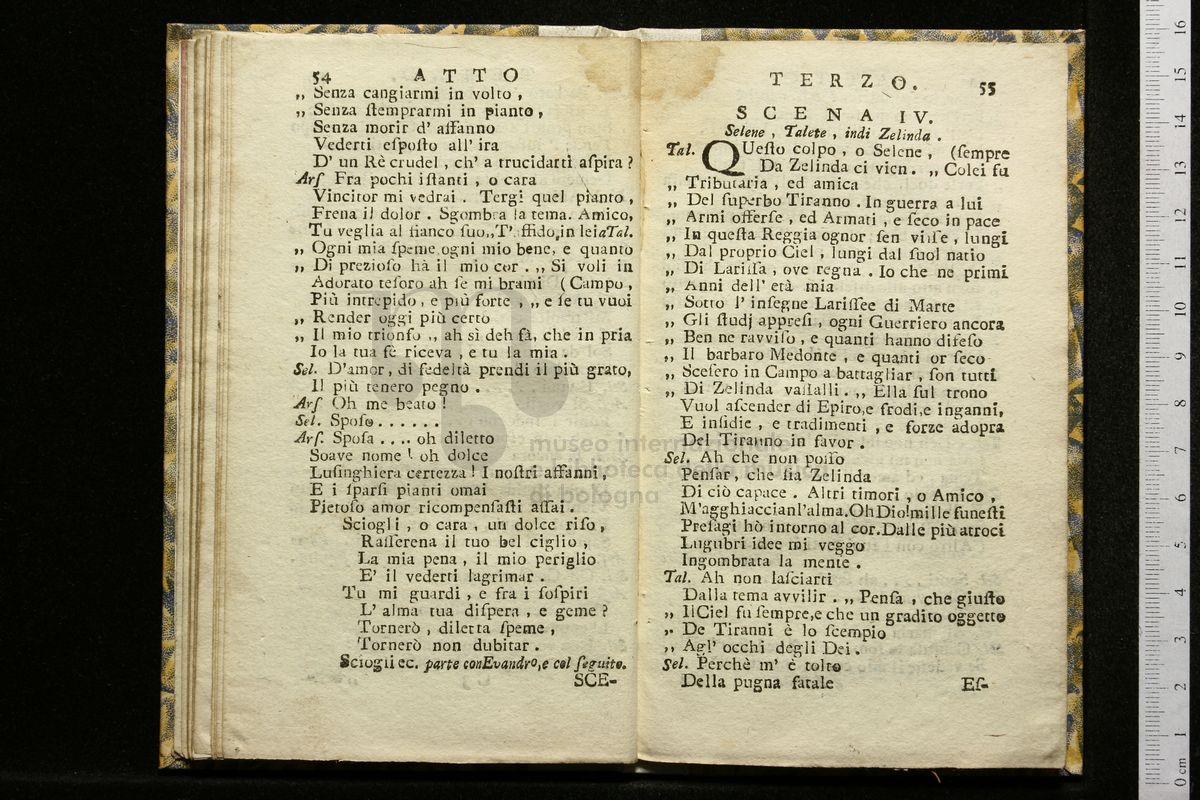 54 ATTO
„ Senza cangiarmi in volto ,
„ Senza ſtemprarmi in pianto ,
Senza morir d' affanno
Vederti eſpoſto all' ira
D' un Rè crudel , ch' a trucidarti aſpira ?
Arſ Fra pochi iſtanti , o cara
Vincitor mi vedrai . Tergi quel pianto ,
Frena il dolor . Sgombra la tema. Amico,
Tu veglia al fianco ſuo,,T' affido,in lei aTal.
„ Ogni mia ſpeme ogni mio bene, e quanto
„ Di prezioſo hà il mio cor . „ Si voli in
Adorato teſoro ah ſe mi brami ( Campo ,
Più intrepido , e più forte , „ e ſe tu vuoi
„ Render oggi più certo
„ Il mio trionfo „ ah sì deh fà, che in pria
Io la tua fè riceva , e tu la mia .
Sel. D'amor, di fedeltà prendi il più grato,
Il più tenero pegno .
Arſ Oh me beato !
Sel. Spoſo . . . . . .
Arſ. Spoſa . . . . oh diletto
Soave nome ! oh dolce
Luſinghiera certezza ! I noſtri affanni ,
E i ſparſi pianti omai
Pietoſo amor ricompenſaſti aſſai .
Sciogli , o cara , un dolce riſo ,
Raſſerena il tuo bel ciglio ,
La mia pena , il mio periglio
E' il vederti lagrimar .
Tu mi guardi , e fra i ſoſpiri
L' alma tua diſpera , e geme ?
Tornerò , diletta ſpeme ,
Tornerò non dubitar .
Sciogli ec. parte conEvandro,e col ſeguito.
SCE-
TERZO. 55
SCENA IV.
Selene , Talete , indi Zelinda .
Tal. QUeſto colpo , o Selene , (ſempre
Da Zelinda ci vien . „ Colei fu
„ Tributaria , ed amica
„ Del ſuperbo Tiranno . In guerra a lui
„ Armi offerſe , ed Armati , e ſeco in pace
„ In queſta Reggia ognor ſen viſſe , lungi
„ Dal proprio Ciel , lungi dal ſuol natio
„ Di Lariſſa , ove regna . Io che ne primi
„ Anni dell' età mia
„ Sotto l' inſegne Lariſſee di Marte
„ Gli ſtudj appreſi , ogni Guerriero ancora
„ Ben ne ravviſo , e quanti hanno difeſo
„ Il barbaro Medonte , e quanti or ſeco
„ Sceſero in Campo a battagliar , ſon tutti
„ Di Zelinda vaſſalli . „ Ella ſul trono
Vuol aſcender di Epiro,e frodi,e inganni,
E inſidie , e tradimenti , e forze adopra
Del Tiranno in favor .
Sel. Ah che non poſſo
Penſar, che ſia Zelinda
Di ciò capace . Altri timori , o Amico ,
M'agghiaccianl'alma.OhDio!mille funeſti
Preſagi hò intorno al cor.Dalle più atroci
Lugubri idee mi veggo
Ingombrata la mente .
Tal. Ah non laſciarti
Dalla tema avvilir . „ Penſa , che giuſto
„ IlCiel fu ſempre,e che un gradito oggetto
„ De Tiranni è lo ſcempio
„ Agl' occhi degli Dei .
Sel. Perchè m' è tolto
Della pugna fatale
Eſ-
museo internazionale
e biblioteca della musica
di bologna